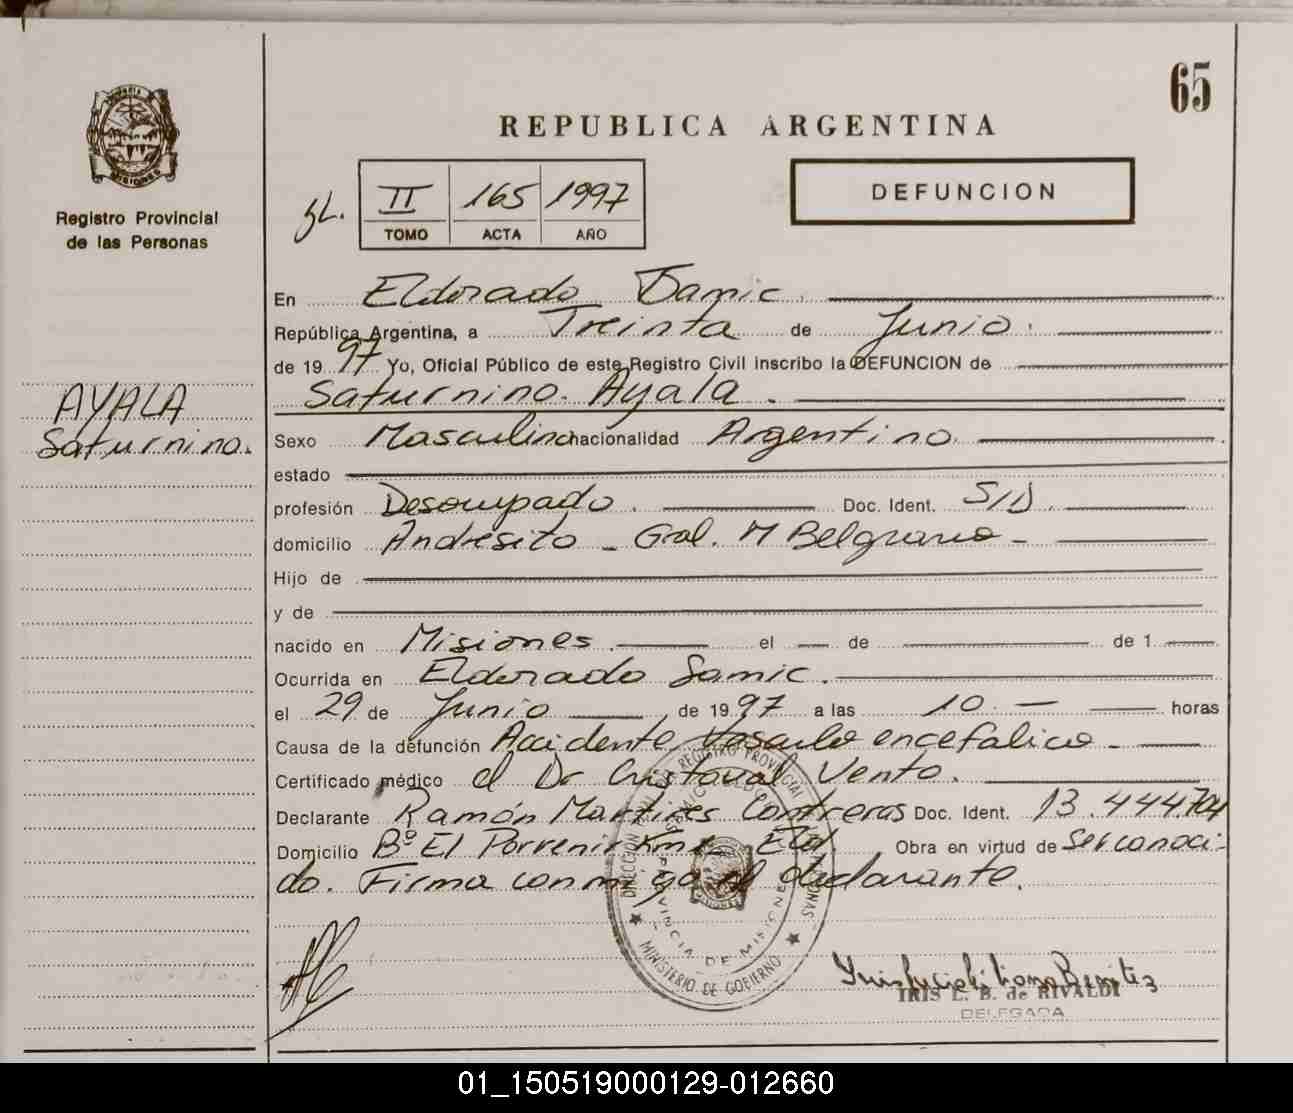 65
REPUBLICA ARGENTINA
MISIONES
Registro Provincial
de las Personas
DEFUNCION
II 165 1997
TOMO ACTA AÑO
En Eldorado Samic.
República Argentina, a Treinta de Junio.
de 1997 Yo, Oficial Público de este Registro Civil inscribo la DEFUNCION de
Saturnino. Ayala.
AYALA
Saturnino.
Sexo Masculino nacionalidad Argentino.
estado
profesión Desocupado. Doc. Ident. S/D.
domicilio Andresito - Gral. M Belgrano -
Hijo de
y de
nacido en Misiones. el — de de 1
Ocurrida en Eldorado Samic.
el 29 de Junio de 1997 a las 10. — horas
Causa de la defunción Accidente Vasculo encefalico -
Certificado médico el Dr Cristoval Vento.
Declarante Ramón Martires Contreras Doc. Ident. 13.444.704
Domicilio Bº El Porvenir Km 2 Eld Obra en virtud de Ser conoci-
do. Firma conmigo el declarante.
REGISTRO PROVINCIAL
PROVINCIA DE MISIONES
MINISTERIO DE GOBIERNO
Iris Lucia Liliana Benitez
IRIS L. B. de RIVALDI
DELEGADA
01_150519000129-012660